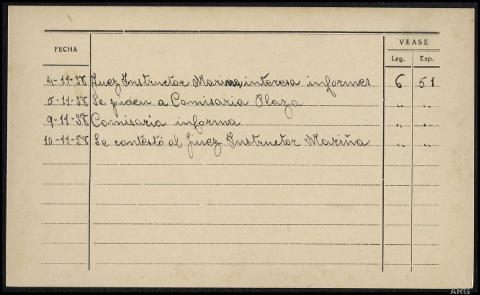 FECHA VEASE
Leg. Exp.
4-11-38 Juez Instructor Marina interesa informes 6 51
5-11-38 Se piden a Comisaria Plaza " "
9-11-38 Comisaria informa " "
10-11-38 Se contestó al Juez Instructor Mariña " "
ARG